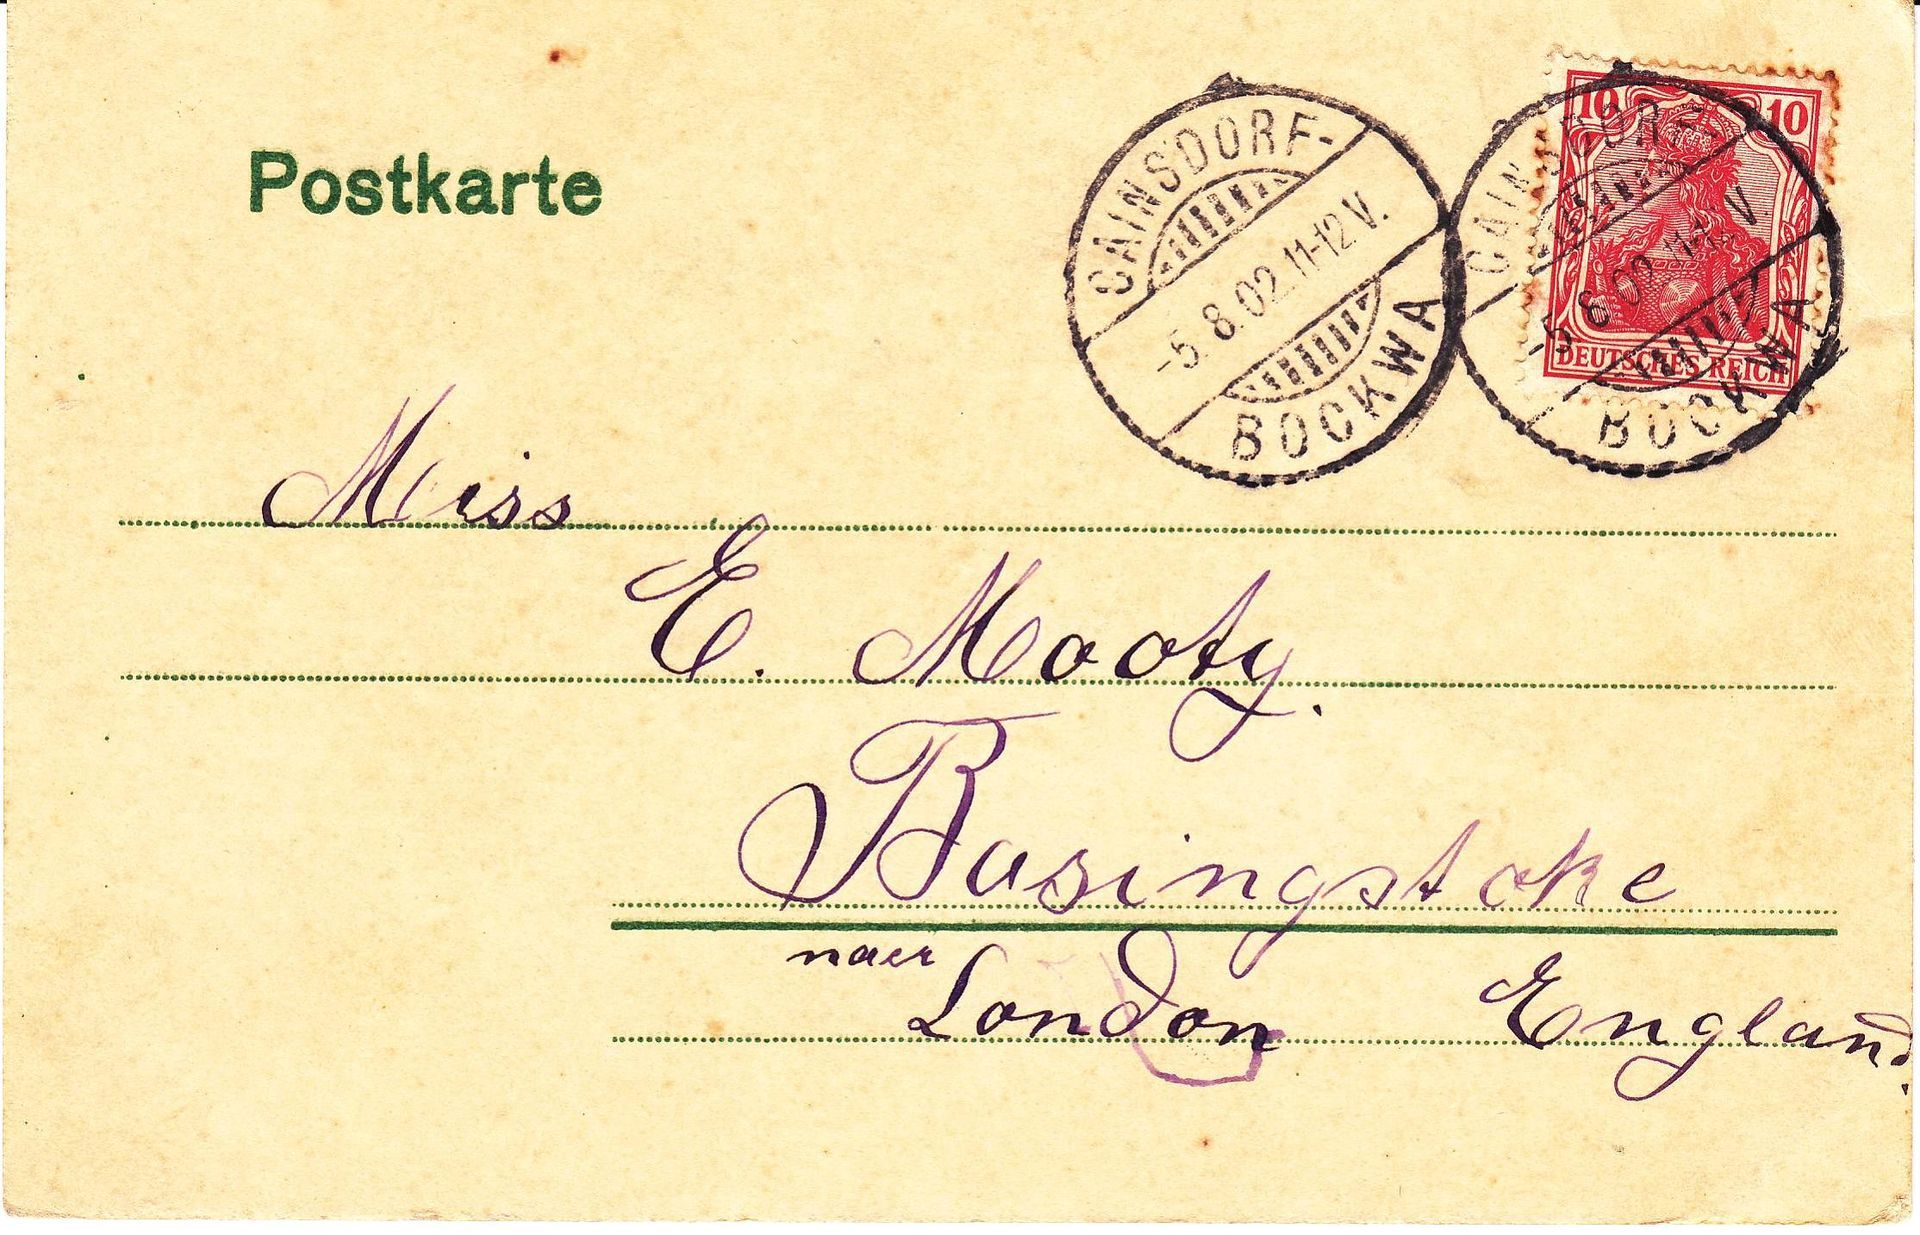 Postkarte
CAINSDORF-
-5.8.02.11-12V.
BOCKWA
10 10
DEUTSCHES REICH
CAINSDORF-
-5.8.02.11-12V.
BOCKWA
Miss
E. Mooty.
Basingstoke
naer
London England.